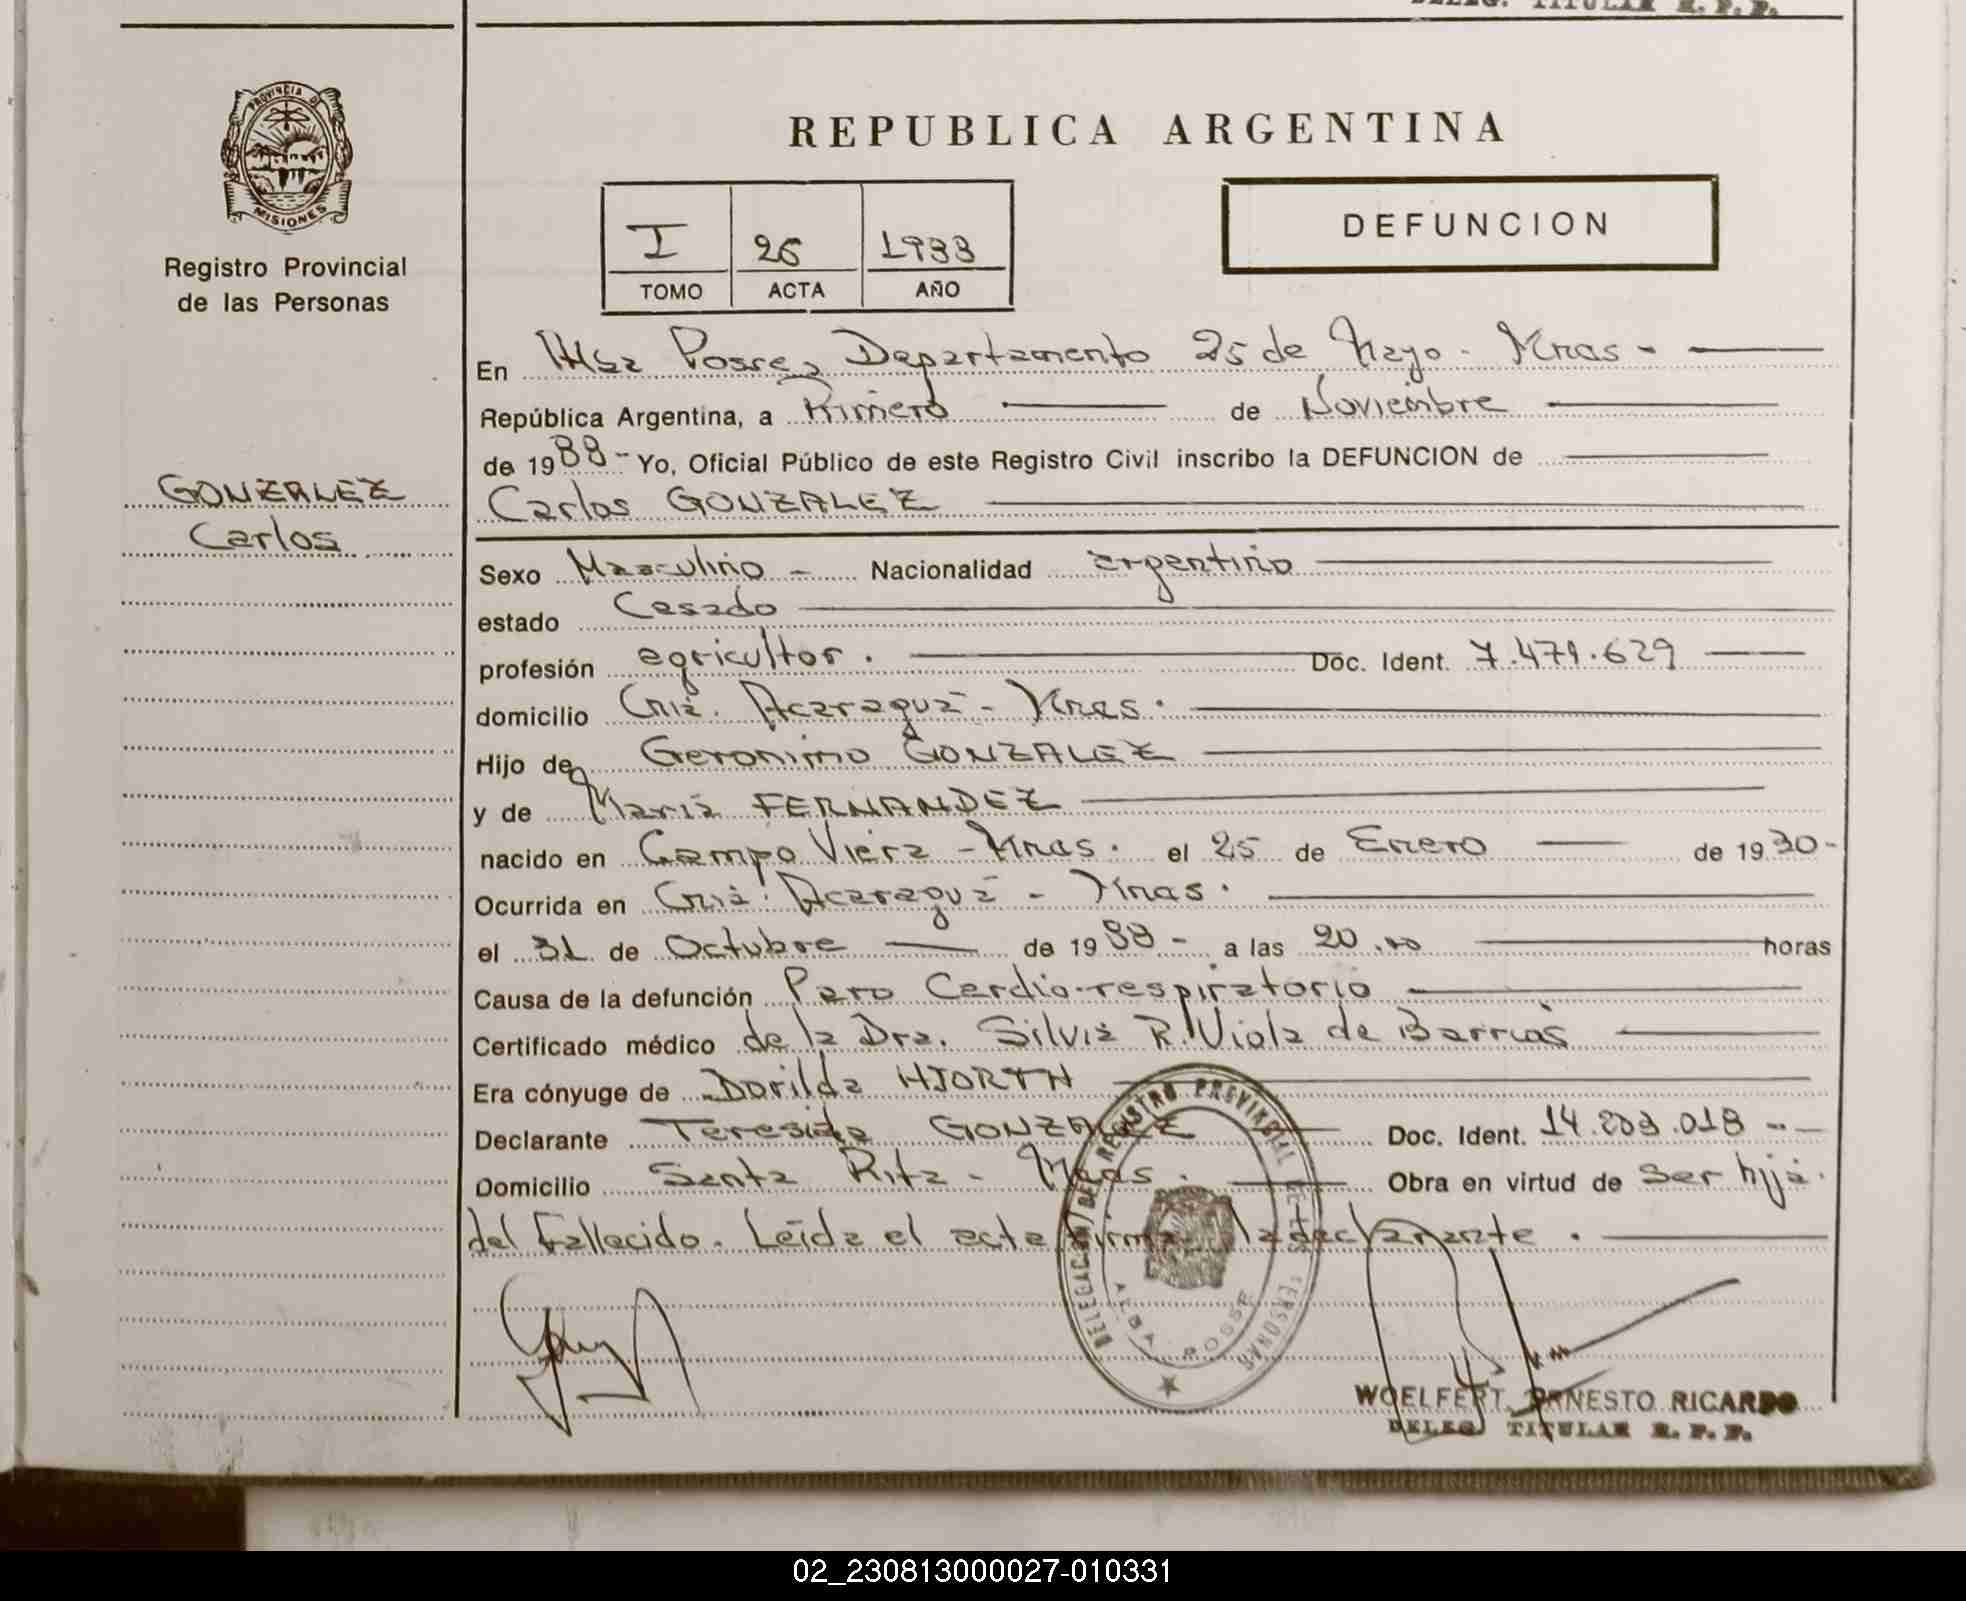 DELEG. TITULAR R. P. P.
PROVINCIA DE
MISIONES
Registro Provincial
de las Personas
REPUBLICA ARGENTINA
I 26 1988
TOMO ACTA AÑO
DEFUNCION
En Alba Posse, Departamento 25 de Mayo - Mnas -
República Argentina, a Primero de Noviembre
de 1988 - Yo, Oficial Público de este Registro Civil inscribo la DEFUNCION de
GONZALEZ
Carlos
Carlos GONZALEZ
Sexo Masculino - Nacionalidad argentino
estado Casado
profesión agricultor. Doc. Ident. 7.471.629
domicilio Cnia. Acaraguá - Mnas.
Hijo de Geronimo GONZALEZ
y de Maria FERNANDEZ
nacido en Campo Viera - Mnas. el 25 de Enero de 1930 -
Ocurrida en Cnia. Acaraguá - Mnas.
el 31 de Octubre de 1988 - a las 20.00 horas
Causa de la defunción Paro Cardio-respiratorio
Certificado médico de la Dra. Silvia R. Viola de Barrios
Era cónyuge de Dorilda HJORTH
Declarante Teresida GONZALEZ Doc. Ident. 14.209.018 --
Domicilio Santa Rita - Mnas. Obra en virtud de ser hija
del fallecido. Leída el acta firma la declarante.
DELEGACION DEL REGISTRO PROVINCIAL DE LAS PERSONAS
ALBA POSSE
WOELFERT, ERNESTO RICARDO
DELEG. TITULAR R. P. P.
02_230813000027-010331